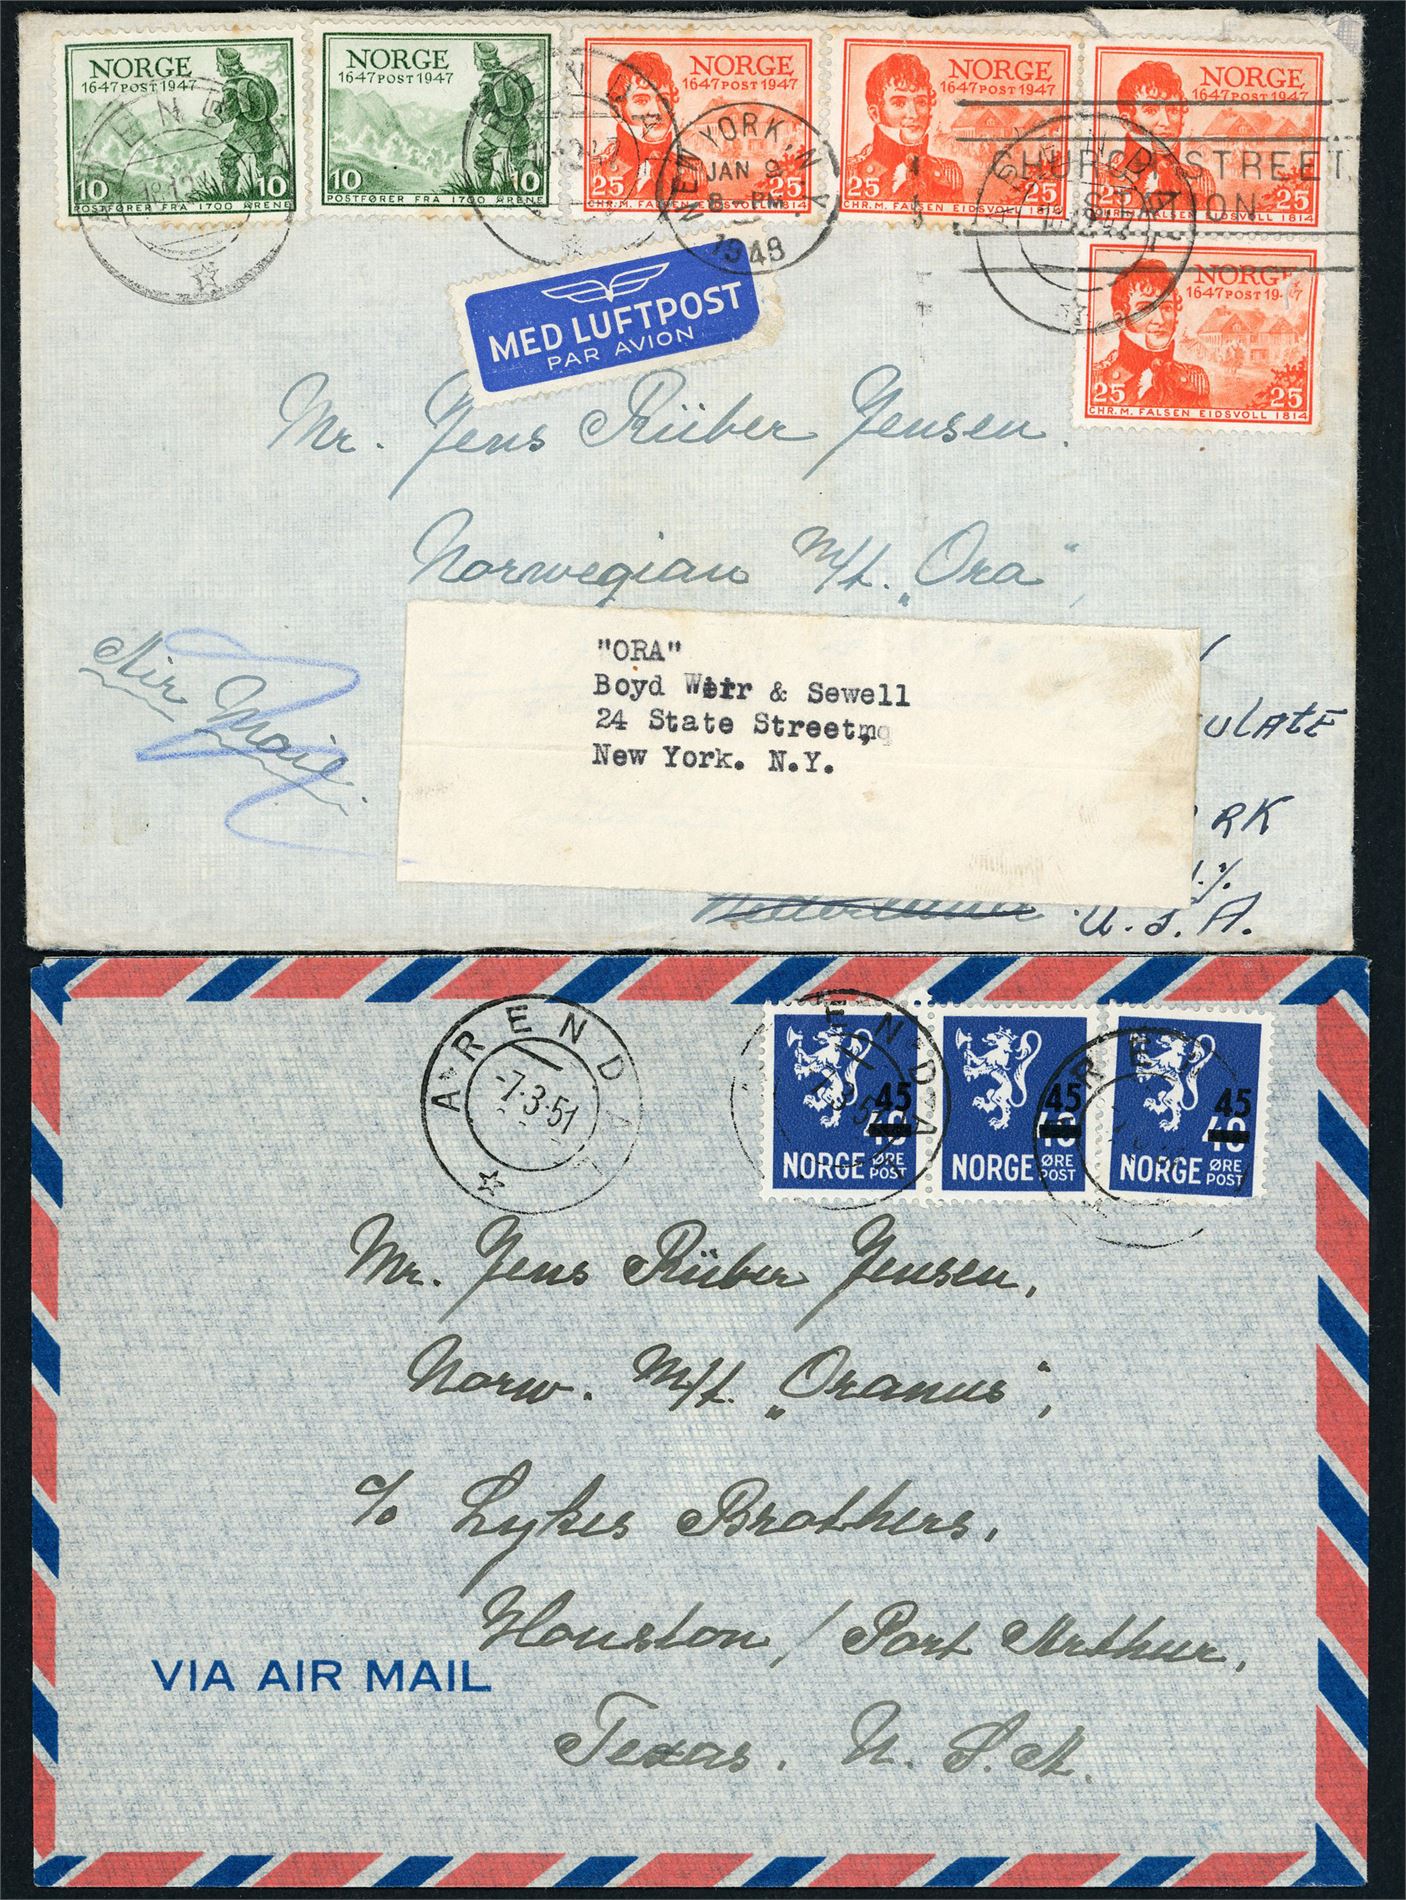 NORGE
1647 POST 1947
10 10
POSTFØRER FRA 1700 ÅRENE
NORGE
1647 POST 1947
10 10
POSTFØRER FRA 1700 ÅRENE
NORGE
1647 POST 1947
25 25
CHR. M. FALSEN EIDSVOLL 1814
NORGE
1647 POST 1947
25 25
CHR. M. FALSEN EIDSVOLL 1814
NORGE
1647 POST 1947
25 25
CHR. M. FALSEN EIDSVOLL 1814
NORGE
1647 POST 1947
25 25
CHR. M. FALSEN EIDSVOLL 1814
NEW YORK, N.Y.
JAN 9
8 - PM
1948
CHURCH STREET
MED LUFTPOST
PAR AVION
Mr. Jens Rüber Jensen.
Norwegian M/t. „Ora“,
Air Mail
"ORA"
Boyd Weir & Sewell
24 State Street,
New York. N.Y.
ULATE
RK
Nederland U.S.A.
ARENDAL
-7.3.51
ARENDAL
7.3.51
45
40
NORGE ØRE POST
45
40
NORGE ØRE POST
45
40
NORGE ØRE POST
Mr. Jens Rüber Jensen,
Norw. M/t. „Oranus“,
c/o Lykes Brothers,
Houston / Port Arthur,
Texas. U.S.A.
VIA AIR MAIL